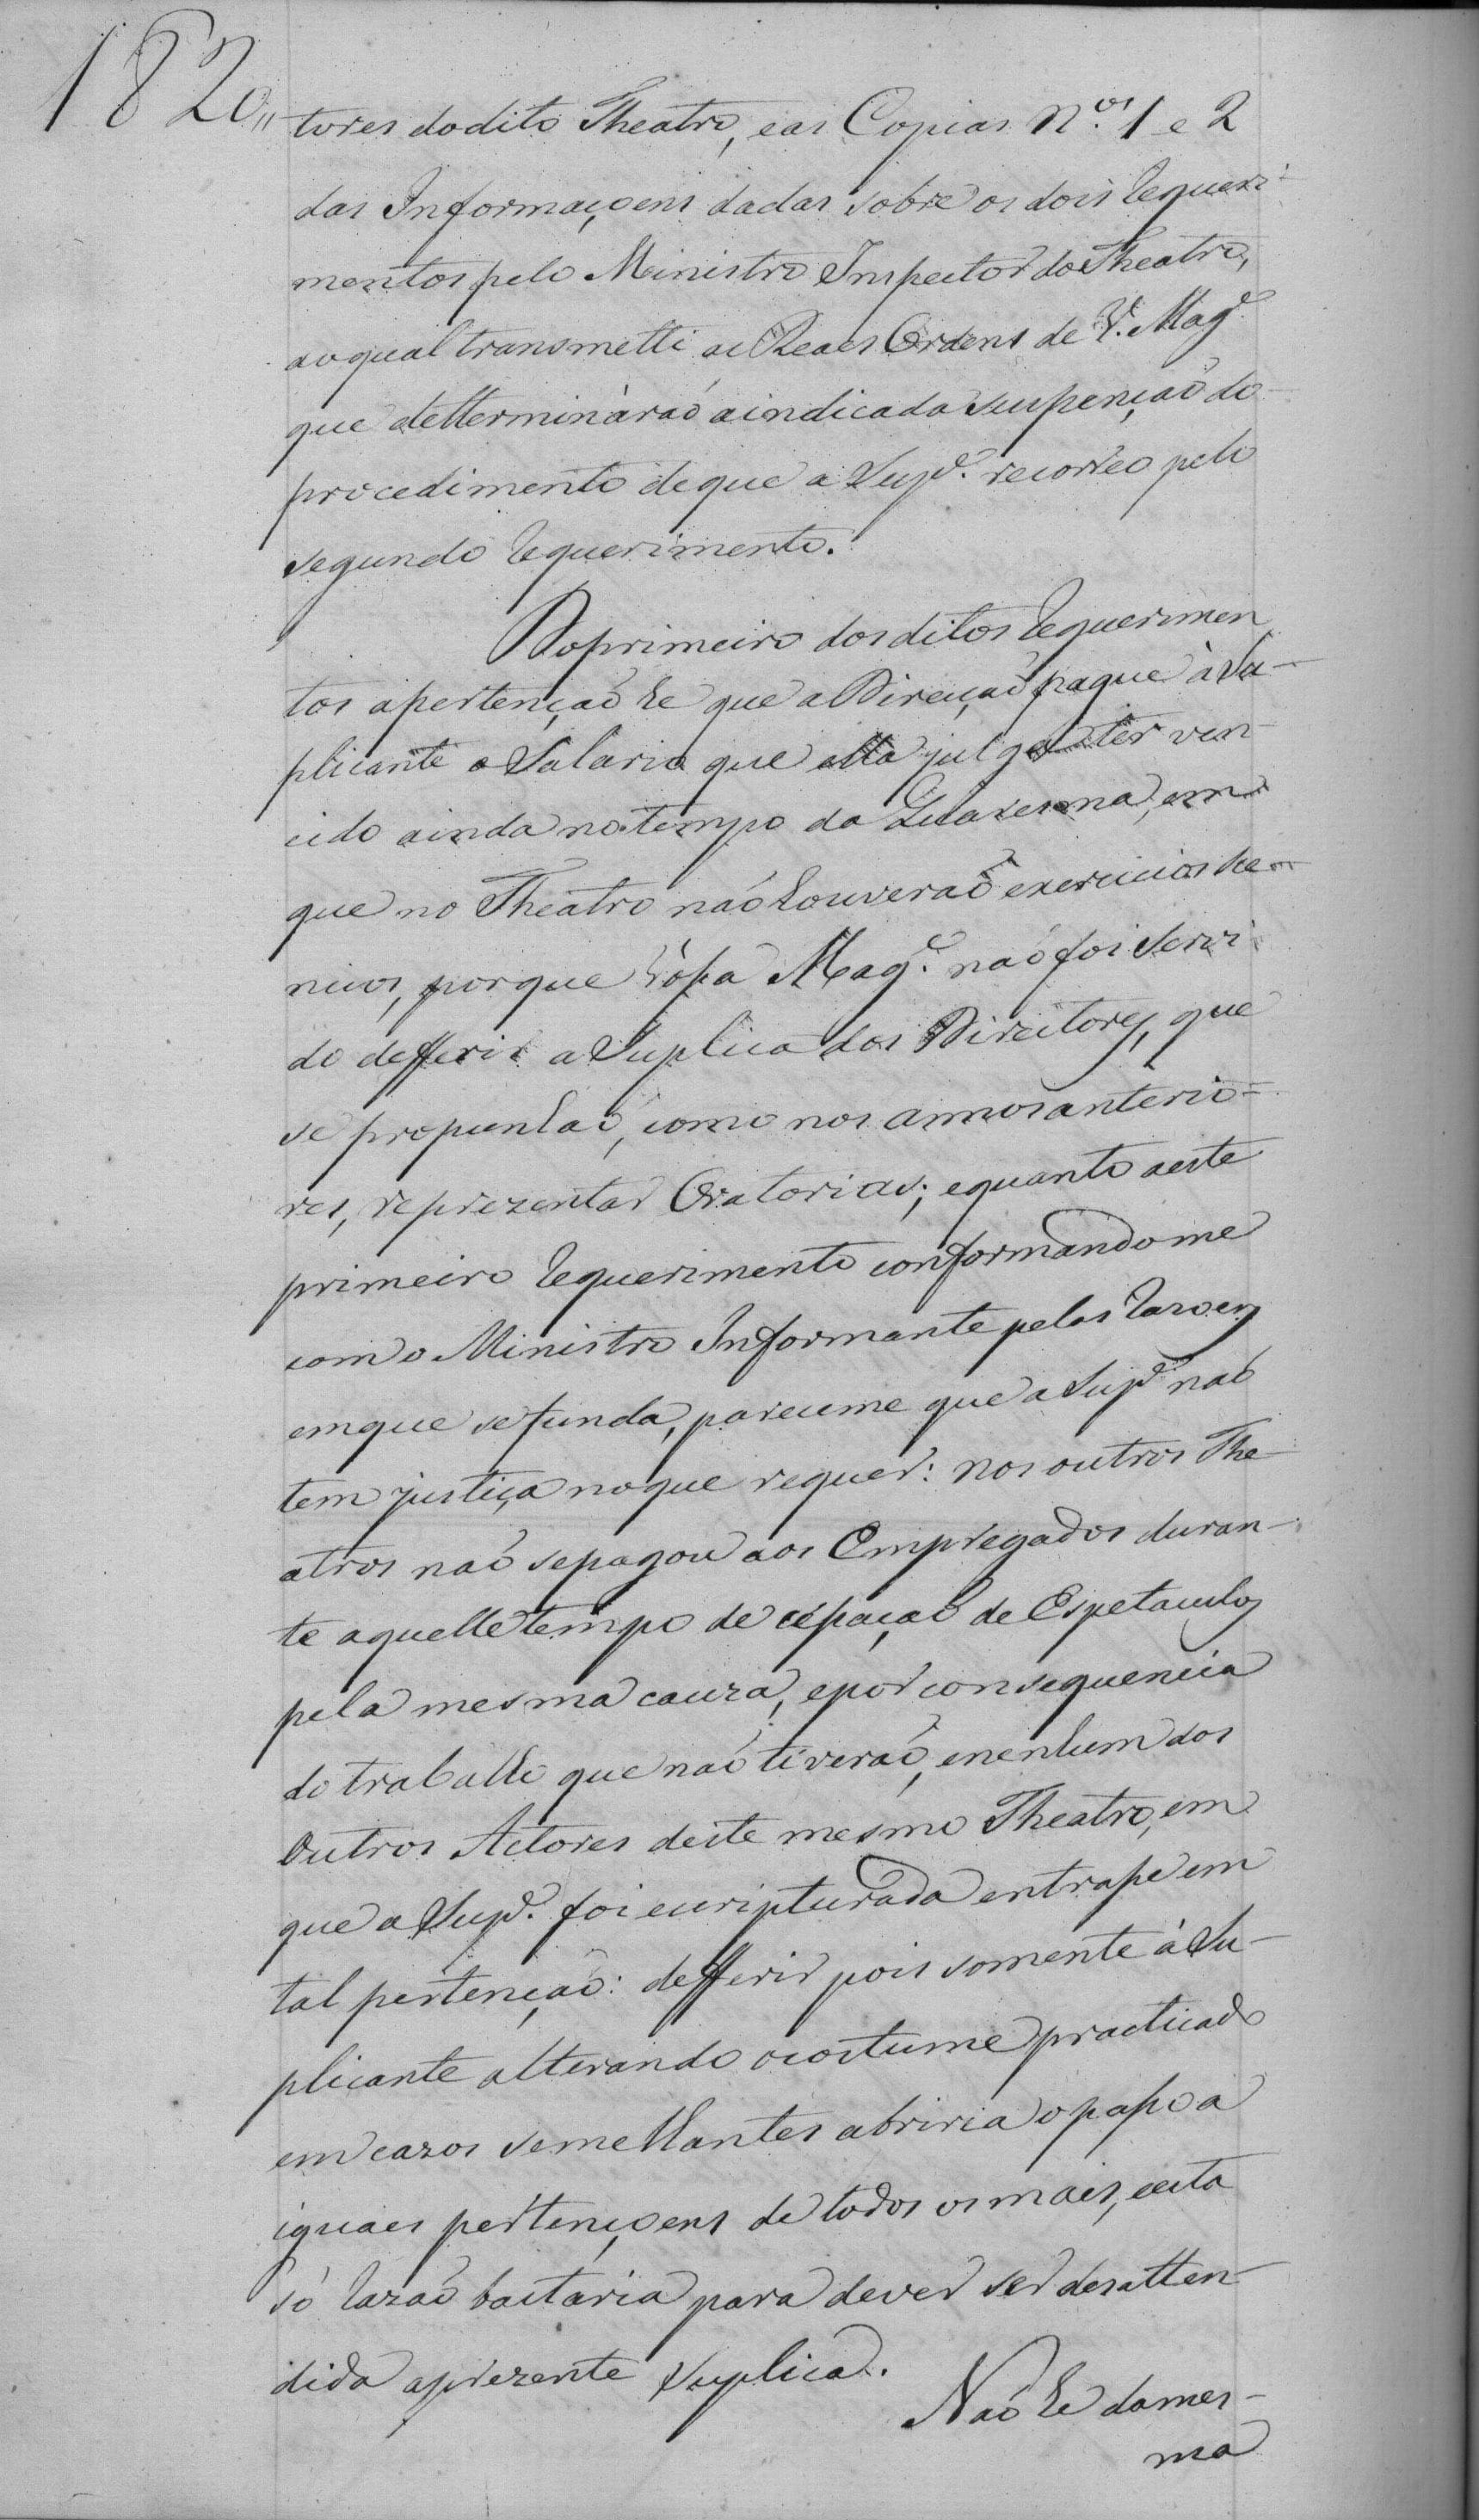 1820,,
tores do dito Theatro, e as Copias N.os 1 e 2
das Informaçoens dadas sobre os dois Requeri-
mentos pelo Ministro Inspector do Theatro,
ao qual transmetti as Reaes Ordens de V. Mag.e
que detterminàraó a indicada suspençaõ do
procedimento de que a Sup.e recorreo pelo
segundo Requerimento.
Do primeiro dos ditos Requerimen
tos a pertençaõ he que a Direcçaõ pague à Su-
plicante o Salario que ella julga ter ven-
cido ainda no tempo da Quaresma, em
que no Theatro naó houveraõ exercicios Sce-
nicos, porque Vossa Mag.e naó foi servi
do defferir a Suplica dos Directores, que
se propunhaó, como nos annos anterio-
res, reprezentar Oratorias; e quanto a este
primeiro Requerimento conformandome
com o Ministro Informante pelas Razoens
em que se funda, pareceme que a Sup.e naó
tem justiça no que requer: nos outros The-
atros naó se pagou aos Empregados duran-
te aquelle tempo de cessaçaó de Espetaculos
pela mesma cauza, e por consequencia
do trabalho que naó tiveraó, e nenhum dos
outros Actores deste mesmo Theatro, em
que a Sup.e foi escripturada entrasse em
tal pertençaó: defferir pois somente à Su-
plicante alterando o costume practicado
em cazos semelhantes abriria o passo a
iguaes pertençoens de todos os mais, e esta
só razaó bastaria para dever ser desatten-
dida a prezente suplica.
Naó he da mes-
ma